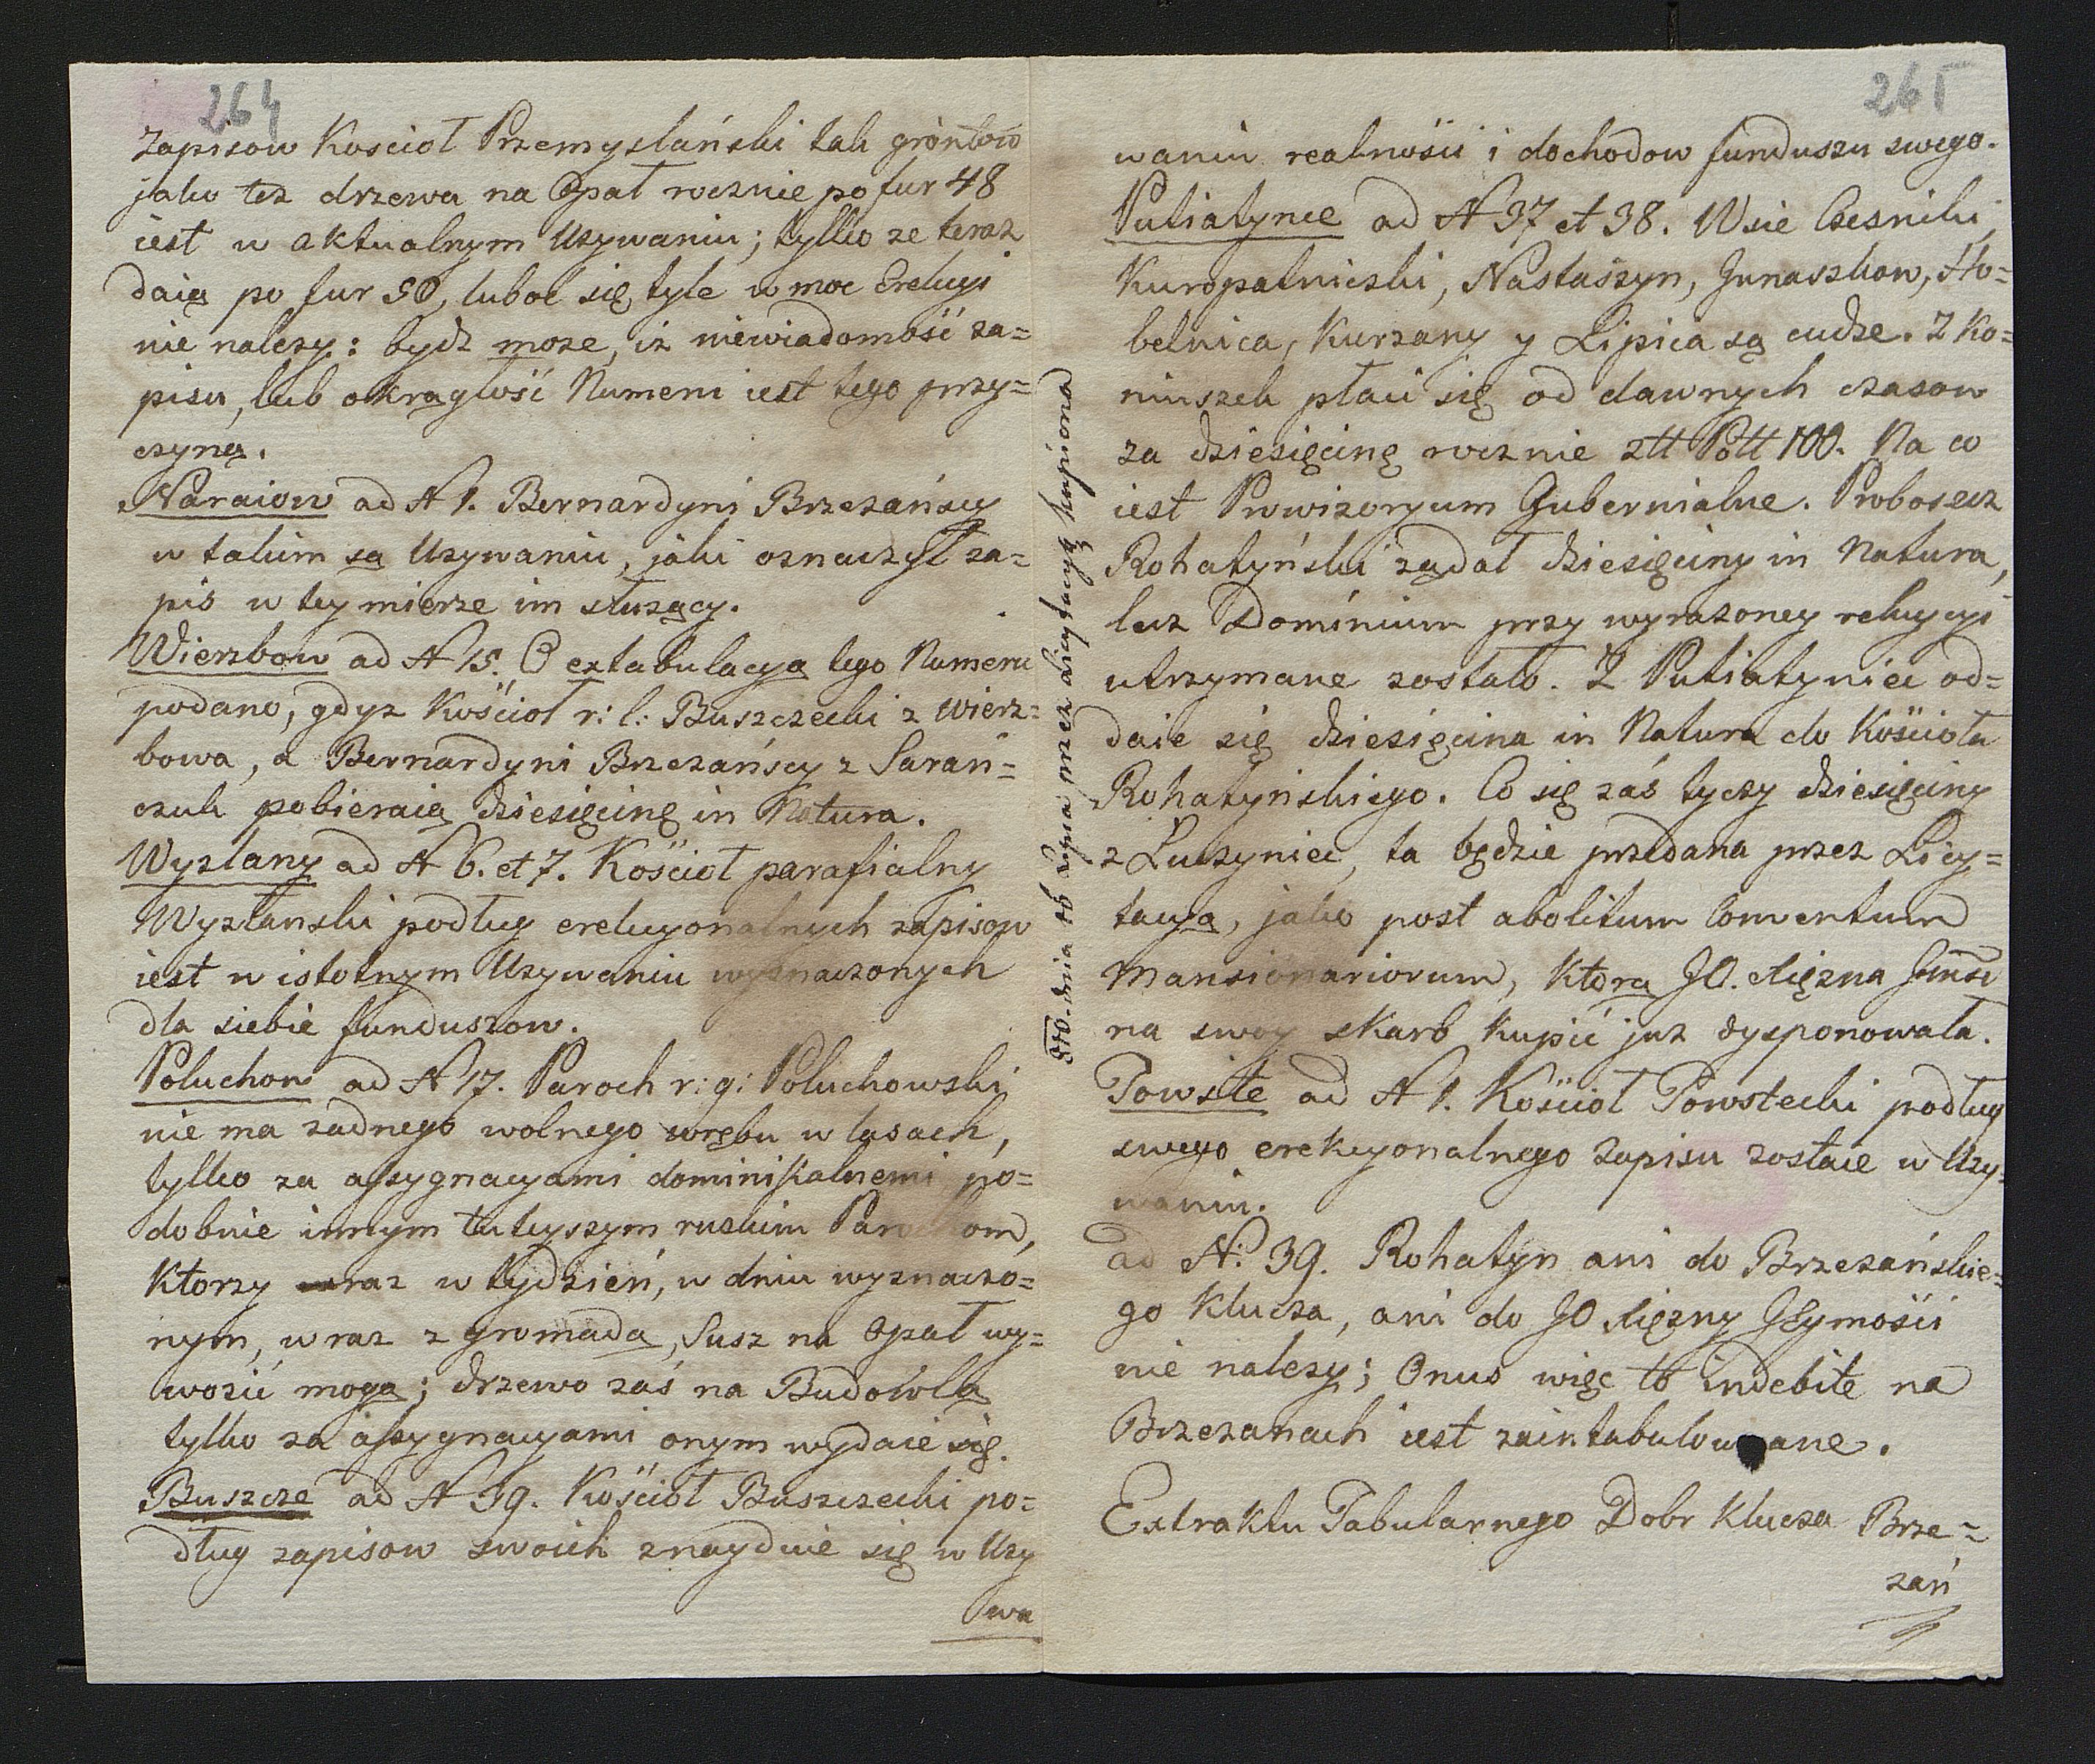 264
Zapisow Koscioł Przemyslański tak gróntow
jako tez drzewa na Opał rocznie po fur 48
iest w aktualnym Uzywaniu; tylko ze teraz
daią po fur 50, luboć się tyle w moc Erekcyi
nie nalezy: bydz moze, iz niewiadomość za=
pisu, lub okrągłość Numeru iest tego przy=
czyną.
Naraiow ad N 1. Bernardyni Brzezańscy
w takim są Uzywaniu, jaki oznaczył za=
pis w tey mierze im służący.
Wierzbow ad N 15. O extabulacyą tego Numeru
podano, gdyz Kościoł r: l: Buszczecki z Wierz=
bowa, a Bernardyni Brzezańscy z Sarań=
czuk pobieraią dziesięcinę in Natura.
Wyzłany ad N 6. et 7. Kościoł parafialny
Wyzłanski podług erekcyonalnych zapisow
iest w istotnym Uzywaniu wyznaczonych
dla siebie funduszow.
Poluchow ad N 17. Paroch r: g: Poluchowski
nie ma zadnego wolnego wrębu w lasach,
tylko za assygnacyami dominikalnemi po=
dobnie innym tuteyszym ruskim Parochom,
Ktorzy raz w tydzień, w dniu wyznaczo=
nym, wraz z gromadą, Susz na Opał wy=
wozić mogą; drzewo zaś na Budowlą
tylko za assygnacyami onym wydaie się.
Buszcze ad N 39. Kościoł Buszczecki po=
dług zapisow swoich znayduie się w Uzy
wa
265
waniu realności i dochodow funduszu swego.
Putiatynce ad N 37 et 38. Wsie Czesniki,
Kuropatniczki, Nastaszyn, Junaszkow, Sło=
belnica, Kurzany y Lipica są cudze. Z Ko=
niuszek płaci się od dawnych czasow
za dziesięcinę rocznie złł Połł 100. Na co
iest Prowizoryum Gubernialne. Proboszcz
Rohatyński ządał dziesięciny in Natura,
lecz Dominium przy wyrazoney relucyi
utrzymane zostało. Z Putiatyniec od=
daie się dziesięcina in Natura do Kościoła
Rohatynskiego. Co się zaś tyczy dziesięciny
z Łuczyniec, ta będzie przedana przez Licy=
tacyą, jako post abolitum Conventum
Mansionariorum, Ktorą JO. Xięzna Jmść
na swoy skarb Kupić juz dysponowała.
Towste ad N 1. Kościoł Towstecki podług
swego erekcyonalnego Zapisu zostaie w Uzy=
waniu.
ad N: 39. Rohatyn ani do Brzezańskie=
go Klucza, ani do JO Xięzny JEymości
nie nalezy; Onus więc to indebite na
Brzezanach iest zaintabulowane.
Extraktu Tabularnego Dobr Klucza Brze=
zań
przez licytacyą kupiona